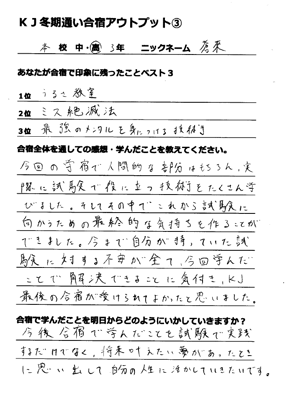 KJ冬期通い合宿アウトプット③
本 校 中・高 3年 ニックネーム 蒼葉
あなたが合宿で印象に残ったことベスト3
1位 うるさ教室
2位 ミス絶滅法
3位 最強のメンタルを身につける技術
合宿全体を通しての感想・学んだことを教えてください。
今回の合宿で人間的な部分はもちろん、実
際に試験で役に立つ技術をたくさん学
びました。そしてその中でこれから試験に
向かうための最終的な気持ちを作ることが
できました。今まで自分が持っていた試
験に対する不安が全て、今回学んだ
ことで解決できることに気付き、KJ
最後の合宿が受けられてよかったと思いました。
合宿で学んだことを明日からどのようにいかしていきますか?
今後合宿で学んだことを試験で実践
するだけでなく、将来叶えたい夢があったとき
に思い出して自分の人生に活かしていきたいです。